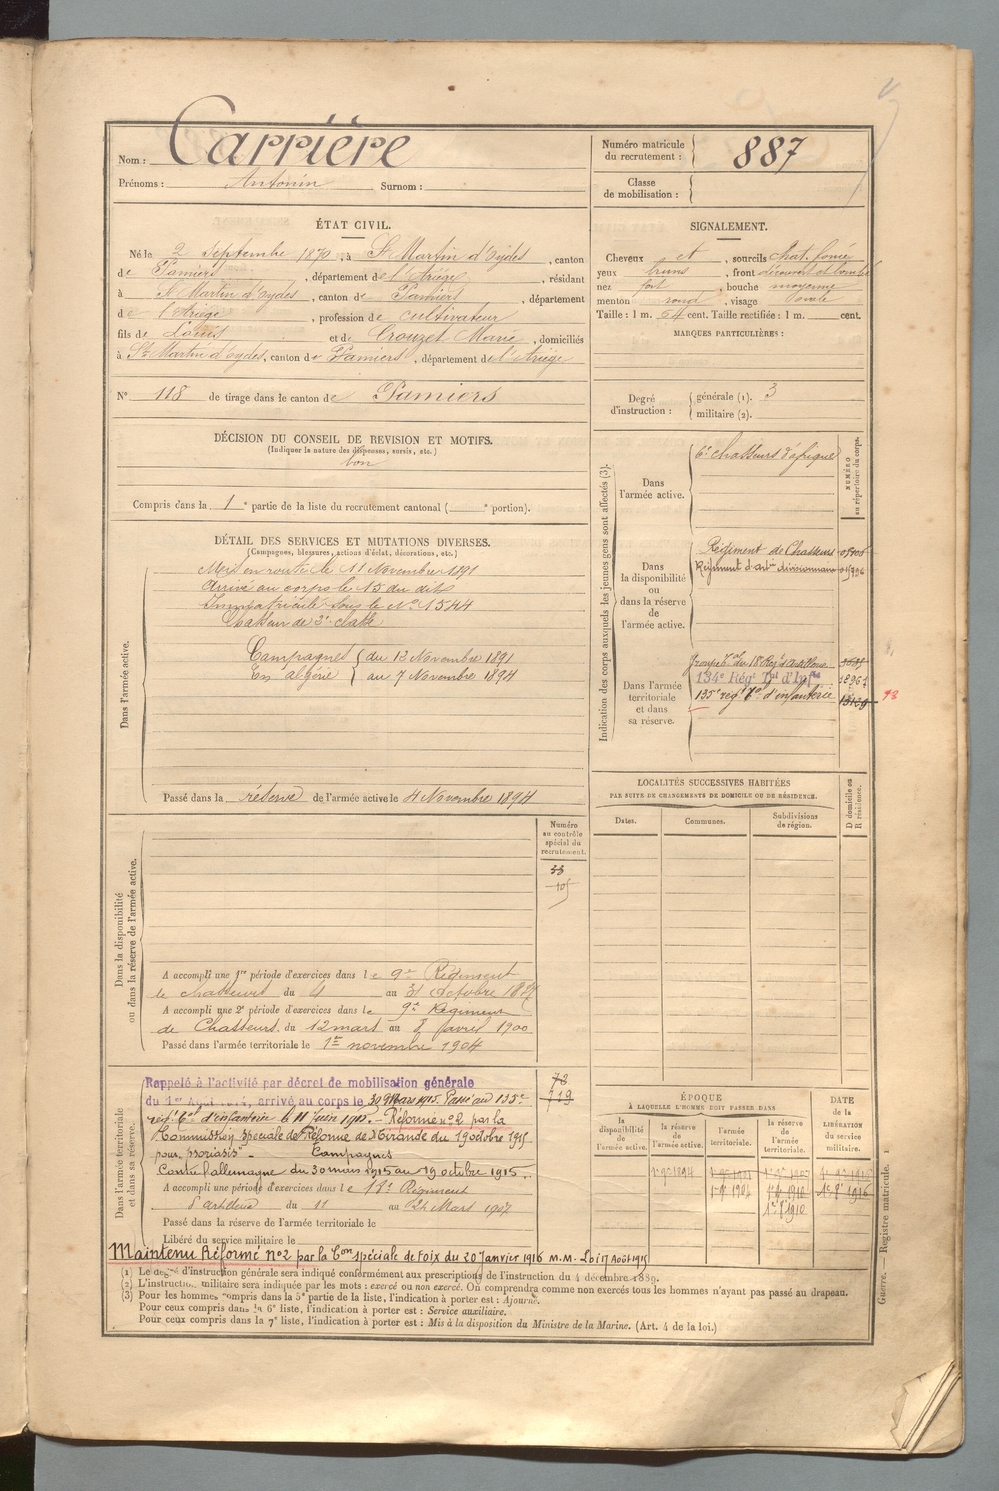 Nom : Carrière
Prénoms : Antonin Surnom :
Numéro matricule du recrutement : 887
Classe de mobilisation :
ÉTAT CIVIL.
Né le 2 Septembre 1870, à St Martin d'Oydes, canton
de Pamiers, département de l'Ariège, résidant
à St Martin d'Oydes, canton de Pamiers, département
de l'Ariège, profession de cultivateur
fils de Louis et de Crouzet Marie, domiciliés
à St Martin d'Oydes, canton de Pamiers, département de l'Ariège
N° 118 de tirage dans le canton de Pamiers
SIGNALEMENT.
Cheveux et, sourcils chat. foncé
yeux bruns, front découvert et bombé
nez fort, bouche moyenne
menton rond, visage ovale
Taille : 1 m. 64 cent. Taille rectifiée : 1 m. cent.
MARQUES PARTICULIÈRES :
Degré d'instruction : générale (1). 3
militaire (2).
DÉCISION DU CONSEIL DE REVISION ET MOTIFS.
(Indiquer la nature des dispenses, sursis, etc.)
bon
Compris dans la 1e partie de la liste du recrutement cantonal ( e portion).
DÉTAIL DES SERVICES ET MUTATIONS DIVERSES.
(Campagnes, blessures, actions d'éclat, décorations, etc.)
Dans l'armée active.
Mis en route le 11 Novembre 1891
Arrivé au corps le 15 du dit
Immatriculé sous le N° 1544
Chasseur de 2e classe
Campagnes du 12 Novembre 1891
En algérie au 7 Novembre 1894
Passé dans la réserve de l'armée active le 4 Novembre 1894
Indication des corps auxquels les jeunes gens sont affectés (3).
NUMÉRO au répertoire du corps.
Dans l'armée active.
6e chasseurs d'afrique
Dans la disponibilité ou dans la réserve de l'armée active.
Régiment de Chasseurs
Régiment d'artie divisionnaire
Dans l'armée territoriale et dans sa réserve.
Groupe Tal du 18 Regt d'artillerie
134e Régt Tal d'Infie
135e régt Tal d'infanterie
LOCALITÉS SUCCESSIVES HABITÉES
PAR SUITE DE CHANGEMENTS DE DOMICILE OU DE RÉSIDENCE.
Dates. Communes. Subdivisions de région. D domicile ou R résidence.
Numéro au contrôle spécial du recrutement.
Dans la disponibilité ou dans la réserve de l'armée active.
A accompli une 1re période d'exercices dans le 9e Régiment
de chasseurs du 4 au 31 Octobre 1897
A accompli une 2e période d'exercices dans le 9e Régiment
de Chasseurs du 12 mars au 8 avril 1900
Passé dans l'armée territoriale le 1er novembre 1904
Dans l'armée territoriale et dans sa réserve.
Rappelé à l'activité par décret de mobilisation générale
du 1er Août 1914, arrivé au corps le 30 Mars 1915. Passé au 135e
régt Tal d'infanterie le 11 Juin 1915. – Réformé n°2 par la
Commission spéciale de Réforme de Gironde du 19 octobre 1915
pour "psoriasis" – Campagnes
Contre l'allemagne du 30 mars 1915 au 19 octobre 1915.
A accompli une période d'exercices dans le 18e Régiment
d'artillerie du 11 au 24 Mars 1907
Passé dans la réserve de l'armée territoriale le
Libéré du service militaire le
Maintenu Réformé n°2 par la Con spéciale de Foix du 20 Janvier 1916 M.M. Loi 17 Août 1915
ÉPOQUE
À LAQUELLE L'HOMME DOIT PASSER DANS
la disponibilité de l'armée active. la réserve de l'armée active. l'armée territoriale. la réserve de l'armée territoriale.
DATE de la LIBÉRATION du service militaire.
(1) Le degré d'instruction générale sera indiqué conformément aux prescriptions de l'instruction du 4 décembre 1889.
(2) L'instruction militaire sera indiquée par les mots : exercé ou non exercé. On comprendra comme non exercés tous les hommes n'ayant pas passé au drapeau.
(3) Pour les hommes compris dans la 5e partie de la liste, l'indication à porter est : Ajourné.
Pour ceux compris dans la 6e liste, l'indication à porter est : Service auxiliaire.
Pour ceux compris dans la 7e liste, l'indication à porter est : Mis à la disposition du Ministre de la Marine. (Art. 4 de la loi.)
Guerre. — Registre matricule.